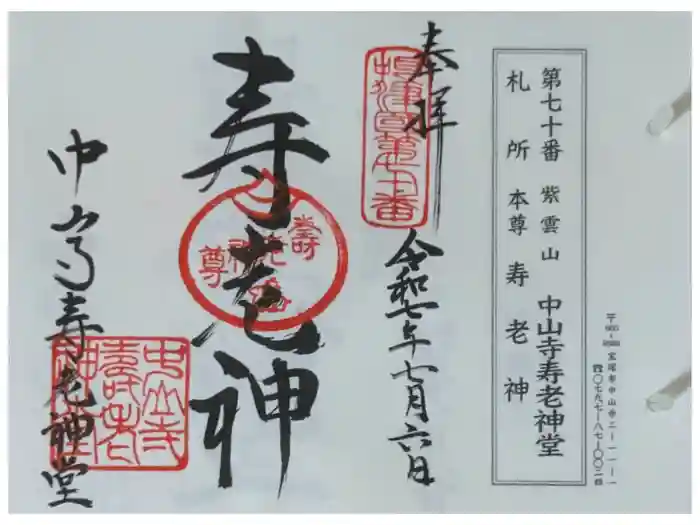 第七十番 紫雲山 中山寺寿老神堂
札所本尊 寿老神
宝塚市中山寺二ー一一ー一
☎〇七九七ー八七ー〇〇二四
奉拝
令和七年七月六日
寿老神
中山寺寿老神堂
中山寺
寿老
神堂